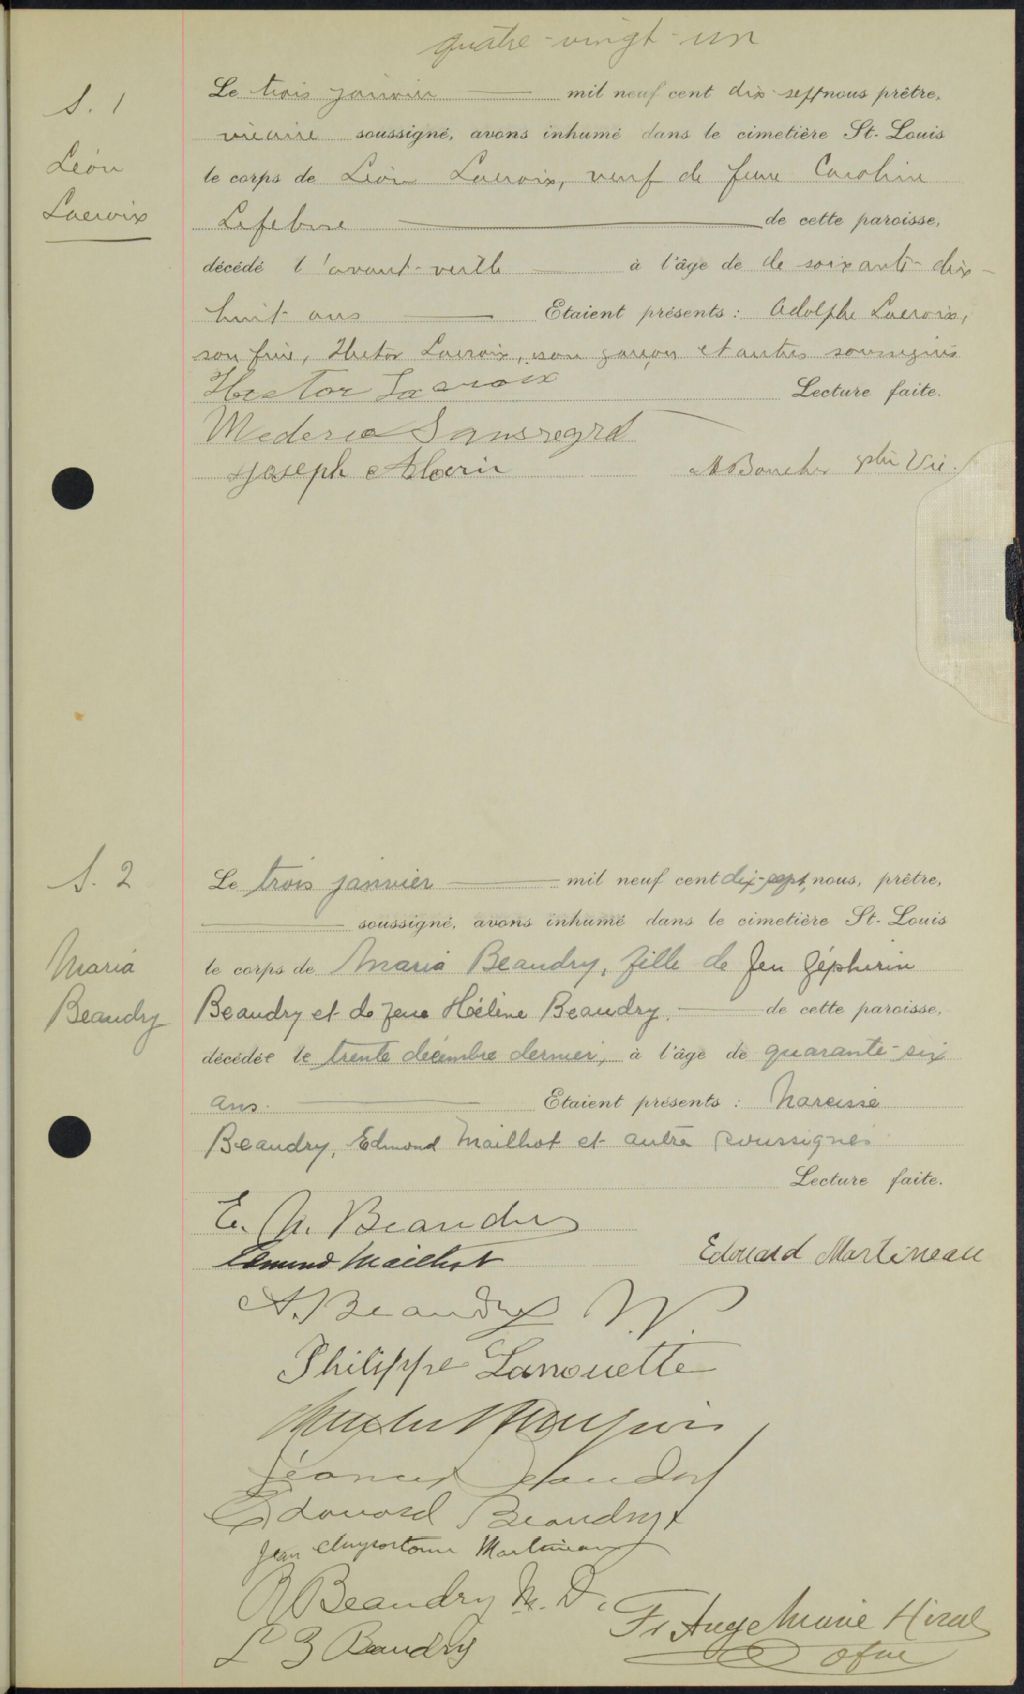 quatre-vingt-un
S. 1
Léon
Lacroix
Le trois janvier mil neuf cent dix-sept nous prêtre,
vicaire soussigné, avons inhumé dans le cimetière St-Louis
le corps de Léon Lacroix, veuf de feue Caroline
Lefebvre de cette paroisse,
décédé l'avant-veille à l'âge de de soixante-dix-
huit ans Etaient présents : Adolphe Lacroix,
son frère, Hector Lacroix, son garçon et autres soussignés
Hector Lacroix Lecture faite.
Mederic Sansregret
Joseph Morin M Boucher ptre Vic.
S. 2
Maria
Beaudry
Le trois janvier mil neuf cent dix-sept, nous, prêtre,
soussigné, avons inhumé dans le cimetière St-Louis
le corps de Maria Beaudry, fille de feu Zéphirin
Beaudry et de feue Hélène Beaudry, de cette paroisse,
décédée le trente décembre dernier, à l'âge de quarante-six
ans. Etaient présents : Narcisse
Beaudry, Edmond Mailhot et autre soussignés
Lecture faite.
E. N. Beaudry
Edmond Mailhot Edouard Martineau
A. Beaudry
Philippe Lanouette
Beaudry
Edouard Beaudry
Jean Chrysostome Martineau
R Beaudry M. D.
L Z Beaudry Fr Ange Marie Hiral
ofm